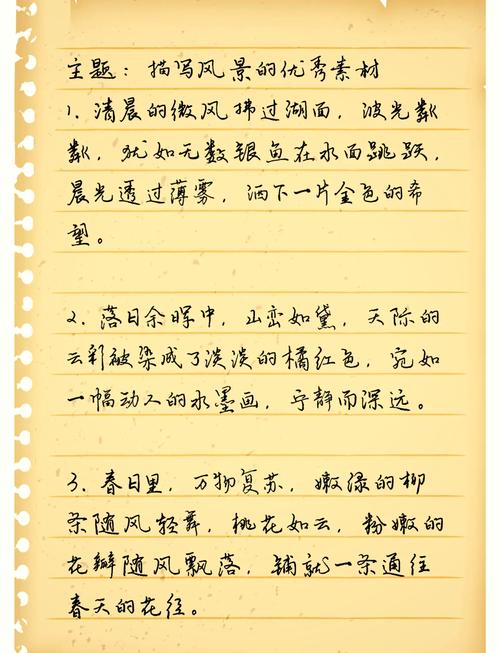 主题：描写风景的优秀素材
1. 清晨的微风拂过湖面，波光粼
粼，犹如无数银鱼在水面跳跃，
晨光透过薄雾，洒下一片金色的希
望。
2. 落日余晖中，山峦如黛，天际的
云彩被染成了淡淡的橘红色，宛如
一幅动人的水墨画，宁静而深远。
3. 春日里，万物复苏，嫩绿的柳
条随风轻舞，桃花如云，粉嫩的
花瓣随风飘落，铺就一条通往
春天的花径。